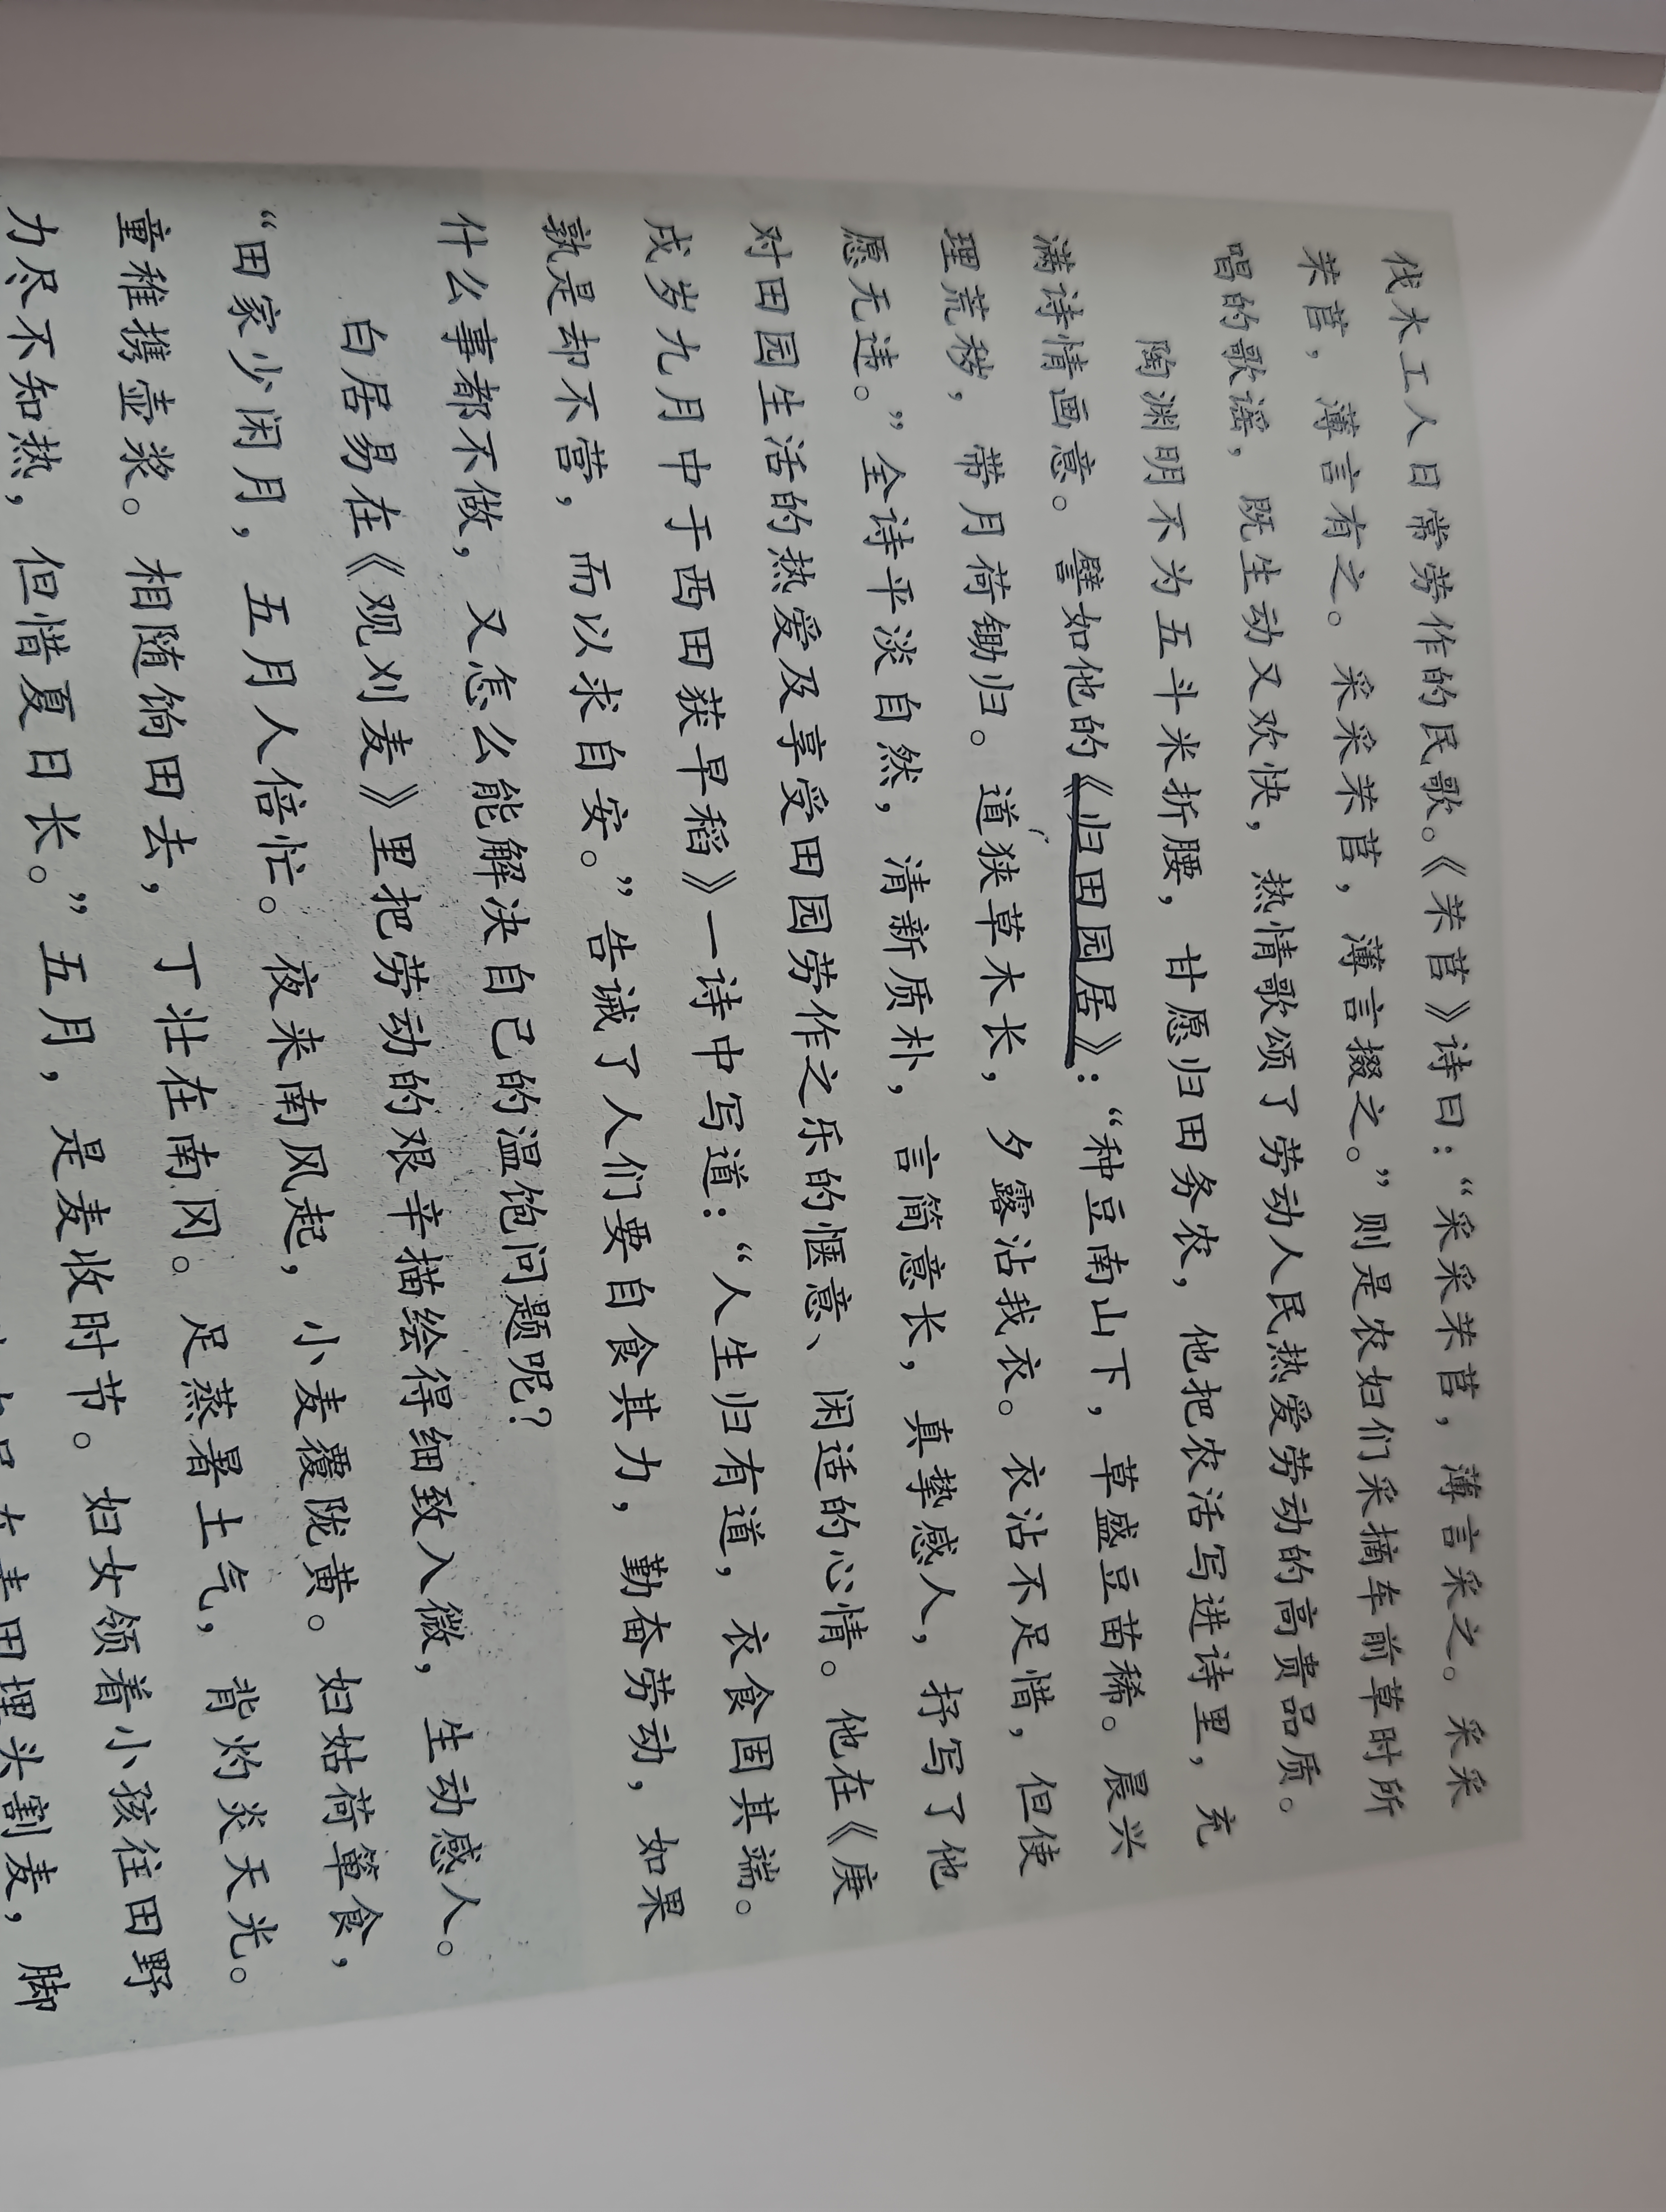 伐木工人日常劳作的民歌。《芣苢》诗曰：“采采芣苢，薄言采之。采采
芣苢，薄言有之。采采芣苢，薄言掇之。”则是农妇们采摘车前草时所
唱的歌谣，既生动又欢快，热情歌颂了劳动人民热爱劳动的高贵品质。
陶渊明不为五斗米折腰，甘愿归田务农，他把农活写进诗里，充
满诗情画意。譬如他的《归田园居》：“种豆南山下，草盛豆苗稀。晨兴
理荒秽，带月荷锄归。道狭草木长，夕露沾我衣。衣沾不足惜，但使
愿无违。”全诗平淡自然，清新质朴，言简意长，真挚感人，抒写了他
对田园生活的热爱及享受田园劳作之乐的惬意、闲适的心情。他在《庚
戌岁九月中于西田获早稻》一诗中写道：“人生归有道，衣食固其端。
孰是却不营，而以求自安。”告诫了人们要自食其力，勤奋劳动，如果
什么事都不做，又怎么能解决自己的温饱问题呢？
白居易在《观刈麦》里把劳动的艰辛描绘得细致入微，生动感人。
“田家少闲月，五月人倍忙。夜来南风起，小麦覆陇黄。妇姑荷箪食，
童稚携壶浆。相随饷田去，丁壮在南冈。足蒸暑土气，背灼炎天光。
力尽不知热，但惜夏日长。”五月，是麦收时节。妇女领着小孩往田野
在麦田埋头割麦，脚